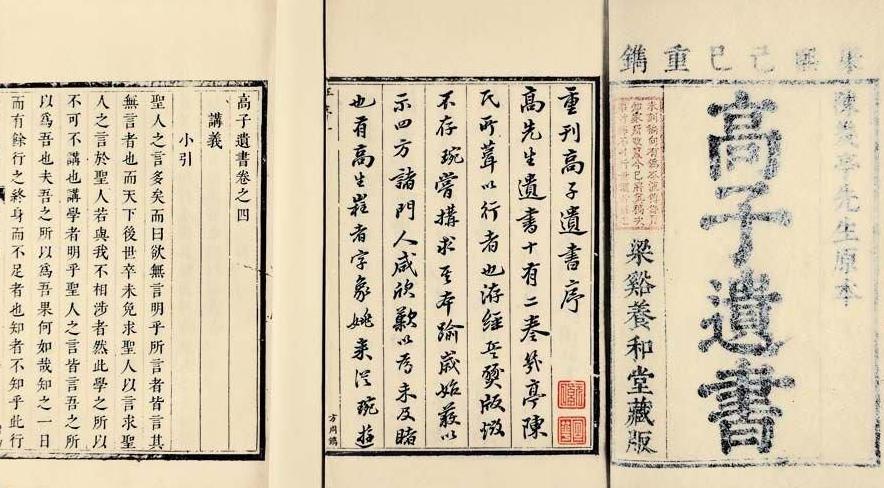 康熙己巳重鐫
陳幾亭先生原本
高子遺書
梁谿養和堂藏版
重刊高子遺書序
高先生遺書十有二卷幾亭陳
氏所葺以行者也洊經兵燹版燬
不存琬嘗搆求本踰歲始獲以
示四方諸門人咸欣歎以為未及睹
也有高生者字象姚来從琬遊
高子遺書卷之四
講義
小引
聖人之言多矣而曰欲無言明乎所言者皆言其
無言者也而天下後世卒未免求聖人以言求聖
人之言於聖人若與我不相涉者然此學之所以
不可不講也講學者明乎聖人之言皆言吾之所
以爲吾也夫吾之所以爲吾果何如哉知之一日
而有餘行之終身而不足者也知者不知乎此行